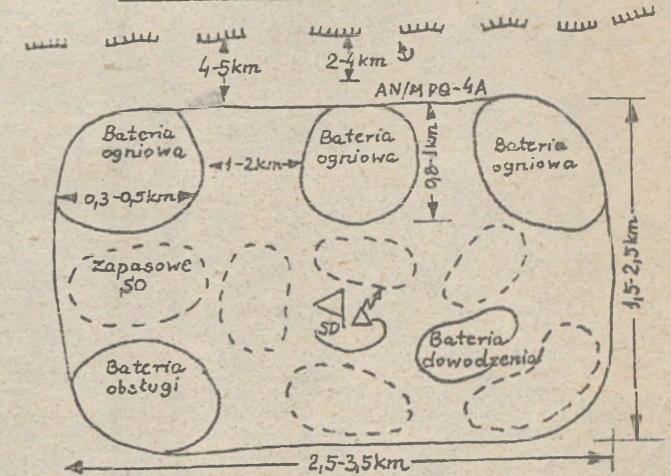 4-5km
2-4km
AN/MPQ-4A
Bateria
ogniowa
1-2km
Bateria
ogniowa
0,8-1km
Bateria
ogniowa
0,3-0,5km
Zapasowe
SD
SD
Bateria
dowodzenia
1,5-2,5km
Bateria
obsługi
2,5-3,5km